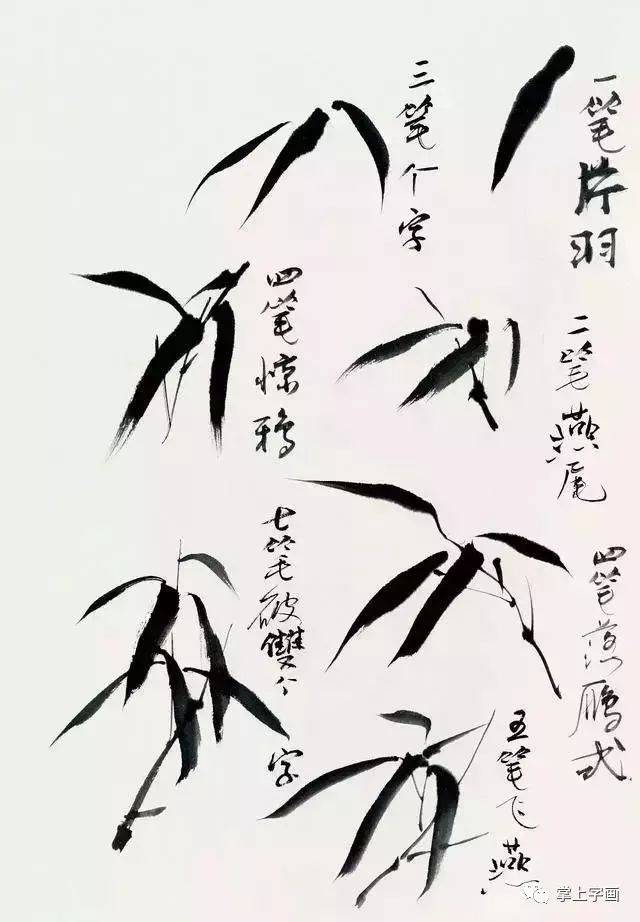 一笔片羽
二笔燕尾
三笔个字
四笔惊鸦
四笔落鹏式
五笔飞燕
七笔破雙个字
掌上字画